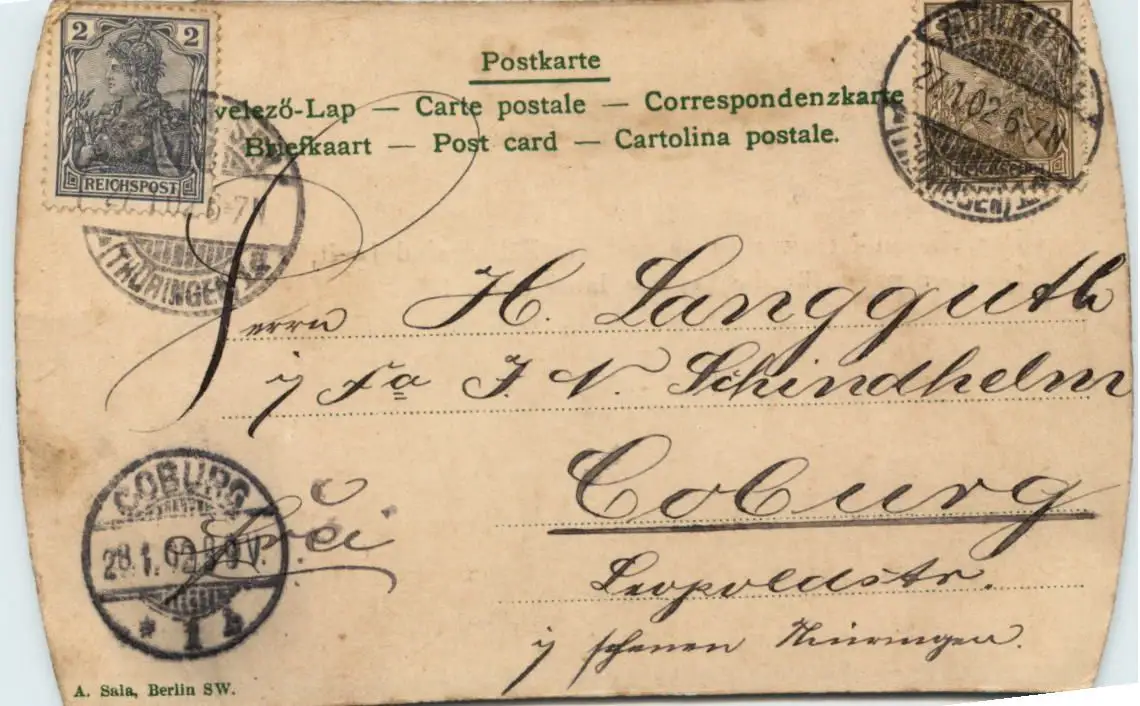 2 2
REICHSPOST
Postkarte
velező-Lap — Carte postale — Correspondenzkarte
Briefkaart — Post card — Cartolina postale.
27.1.02 6-7N
(THÜRINGEN)
27.1.02 6-7N
(THÜRINGEN) 1
Herrn H. Langguth
i/ Fa J. N. Schindhelm
Coburg
Leopoldstr.
i/ schönen Thüringen.
Frei
COBURG
28.1.02 8-9V.
* 1 b
A. Sala, Berlin SW.